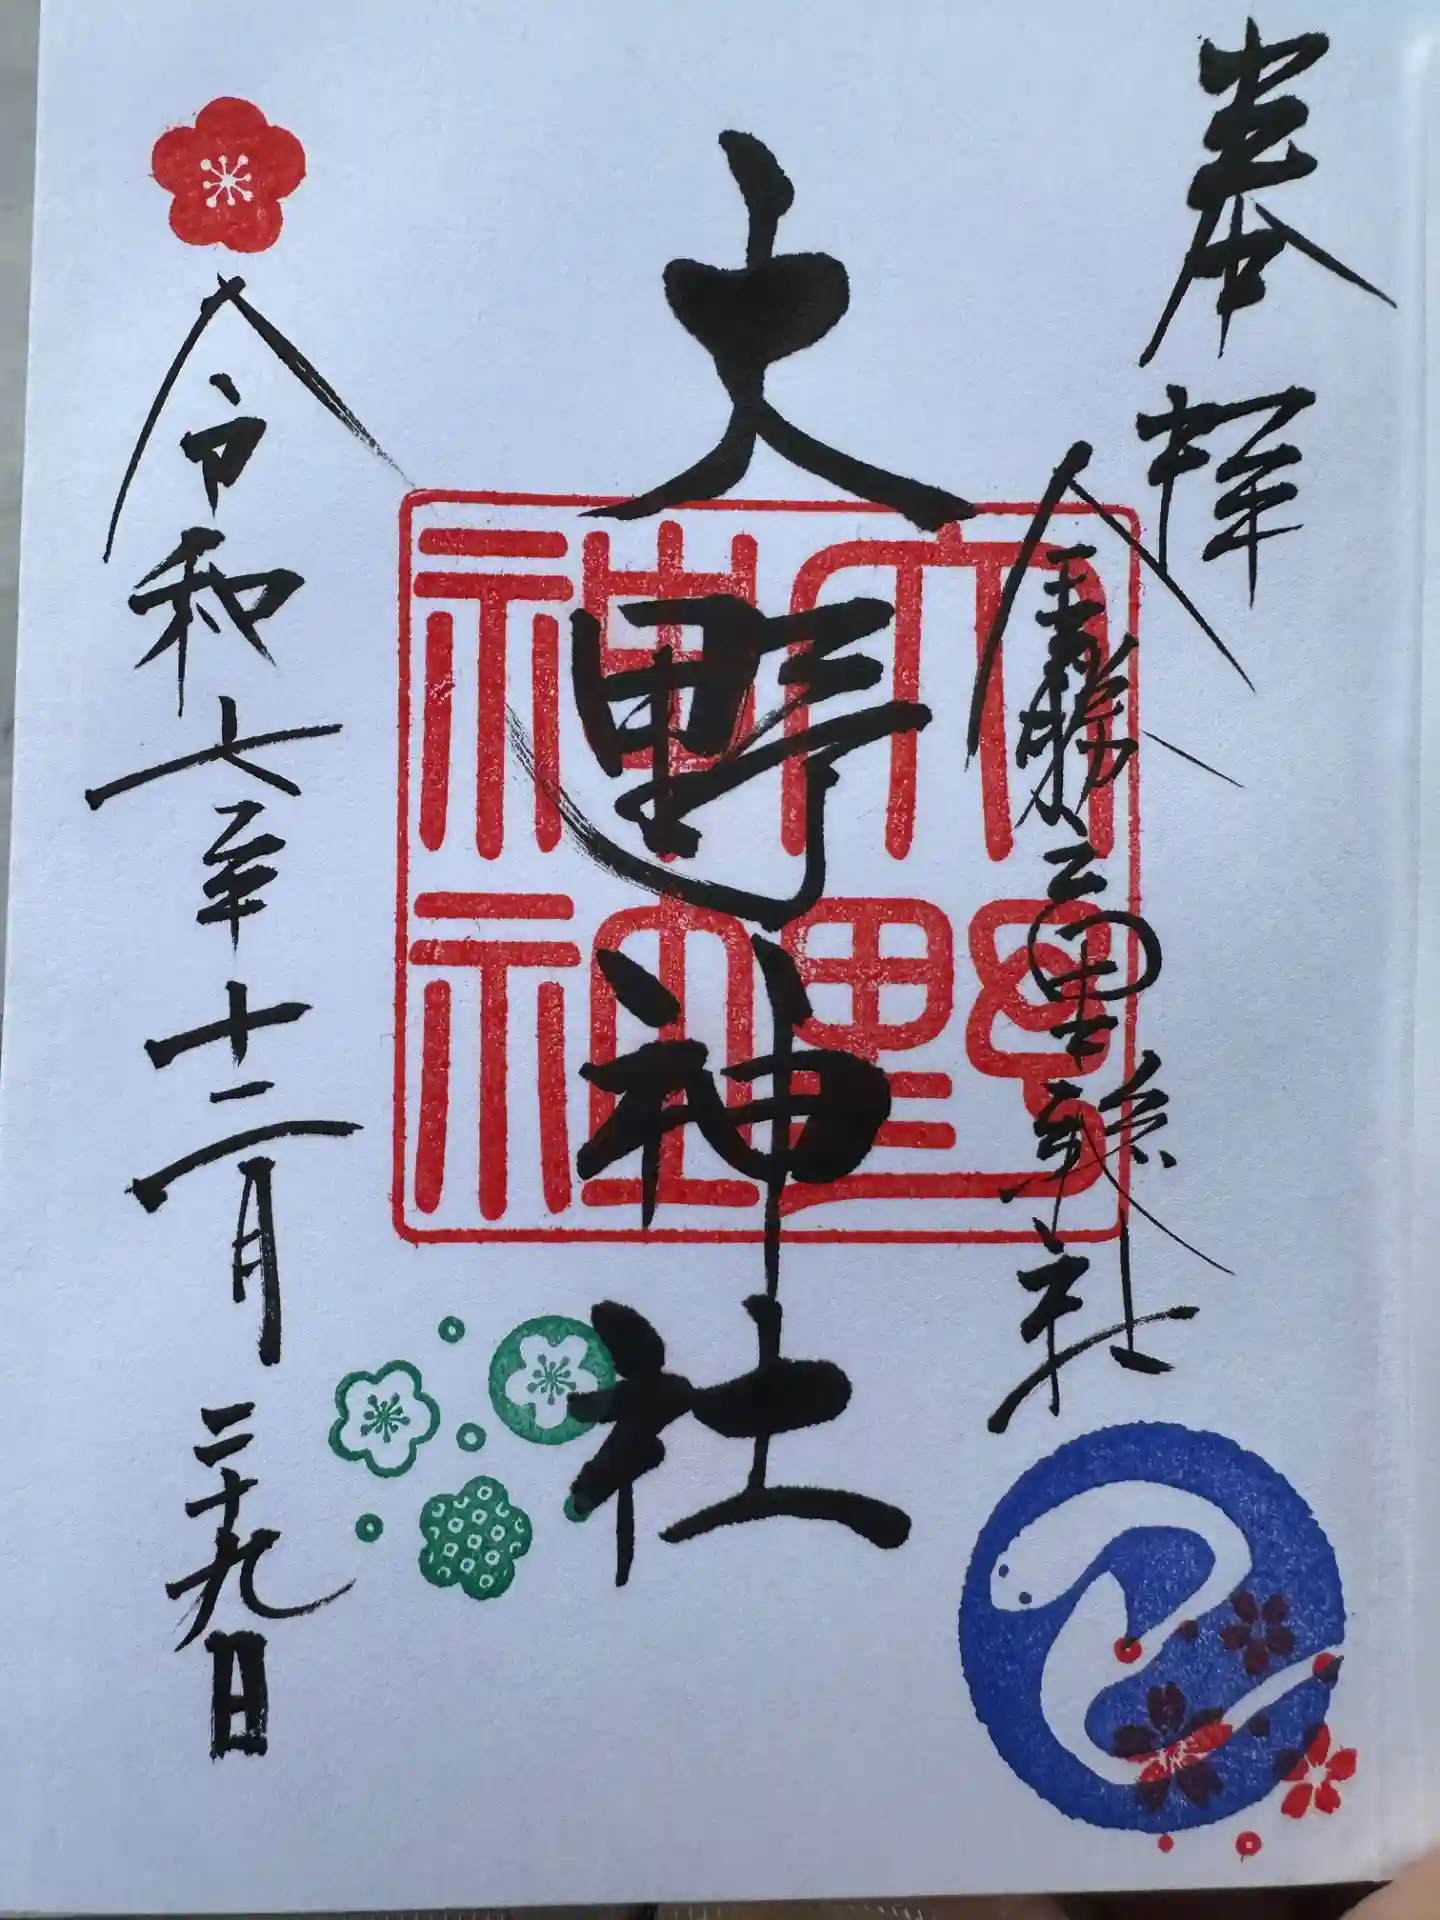 奉拝
金勝
社
大野神社
大野
神社
令和七年十二月二十九日